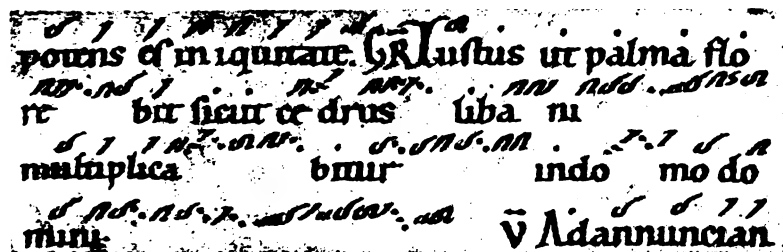 potens es in iquitate. GR Iustus ut palma flo
re bit sicut ce drus liba ni
multiplica bitur indo mo do
mini. V Adannuncian